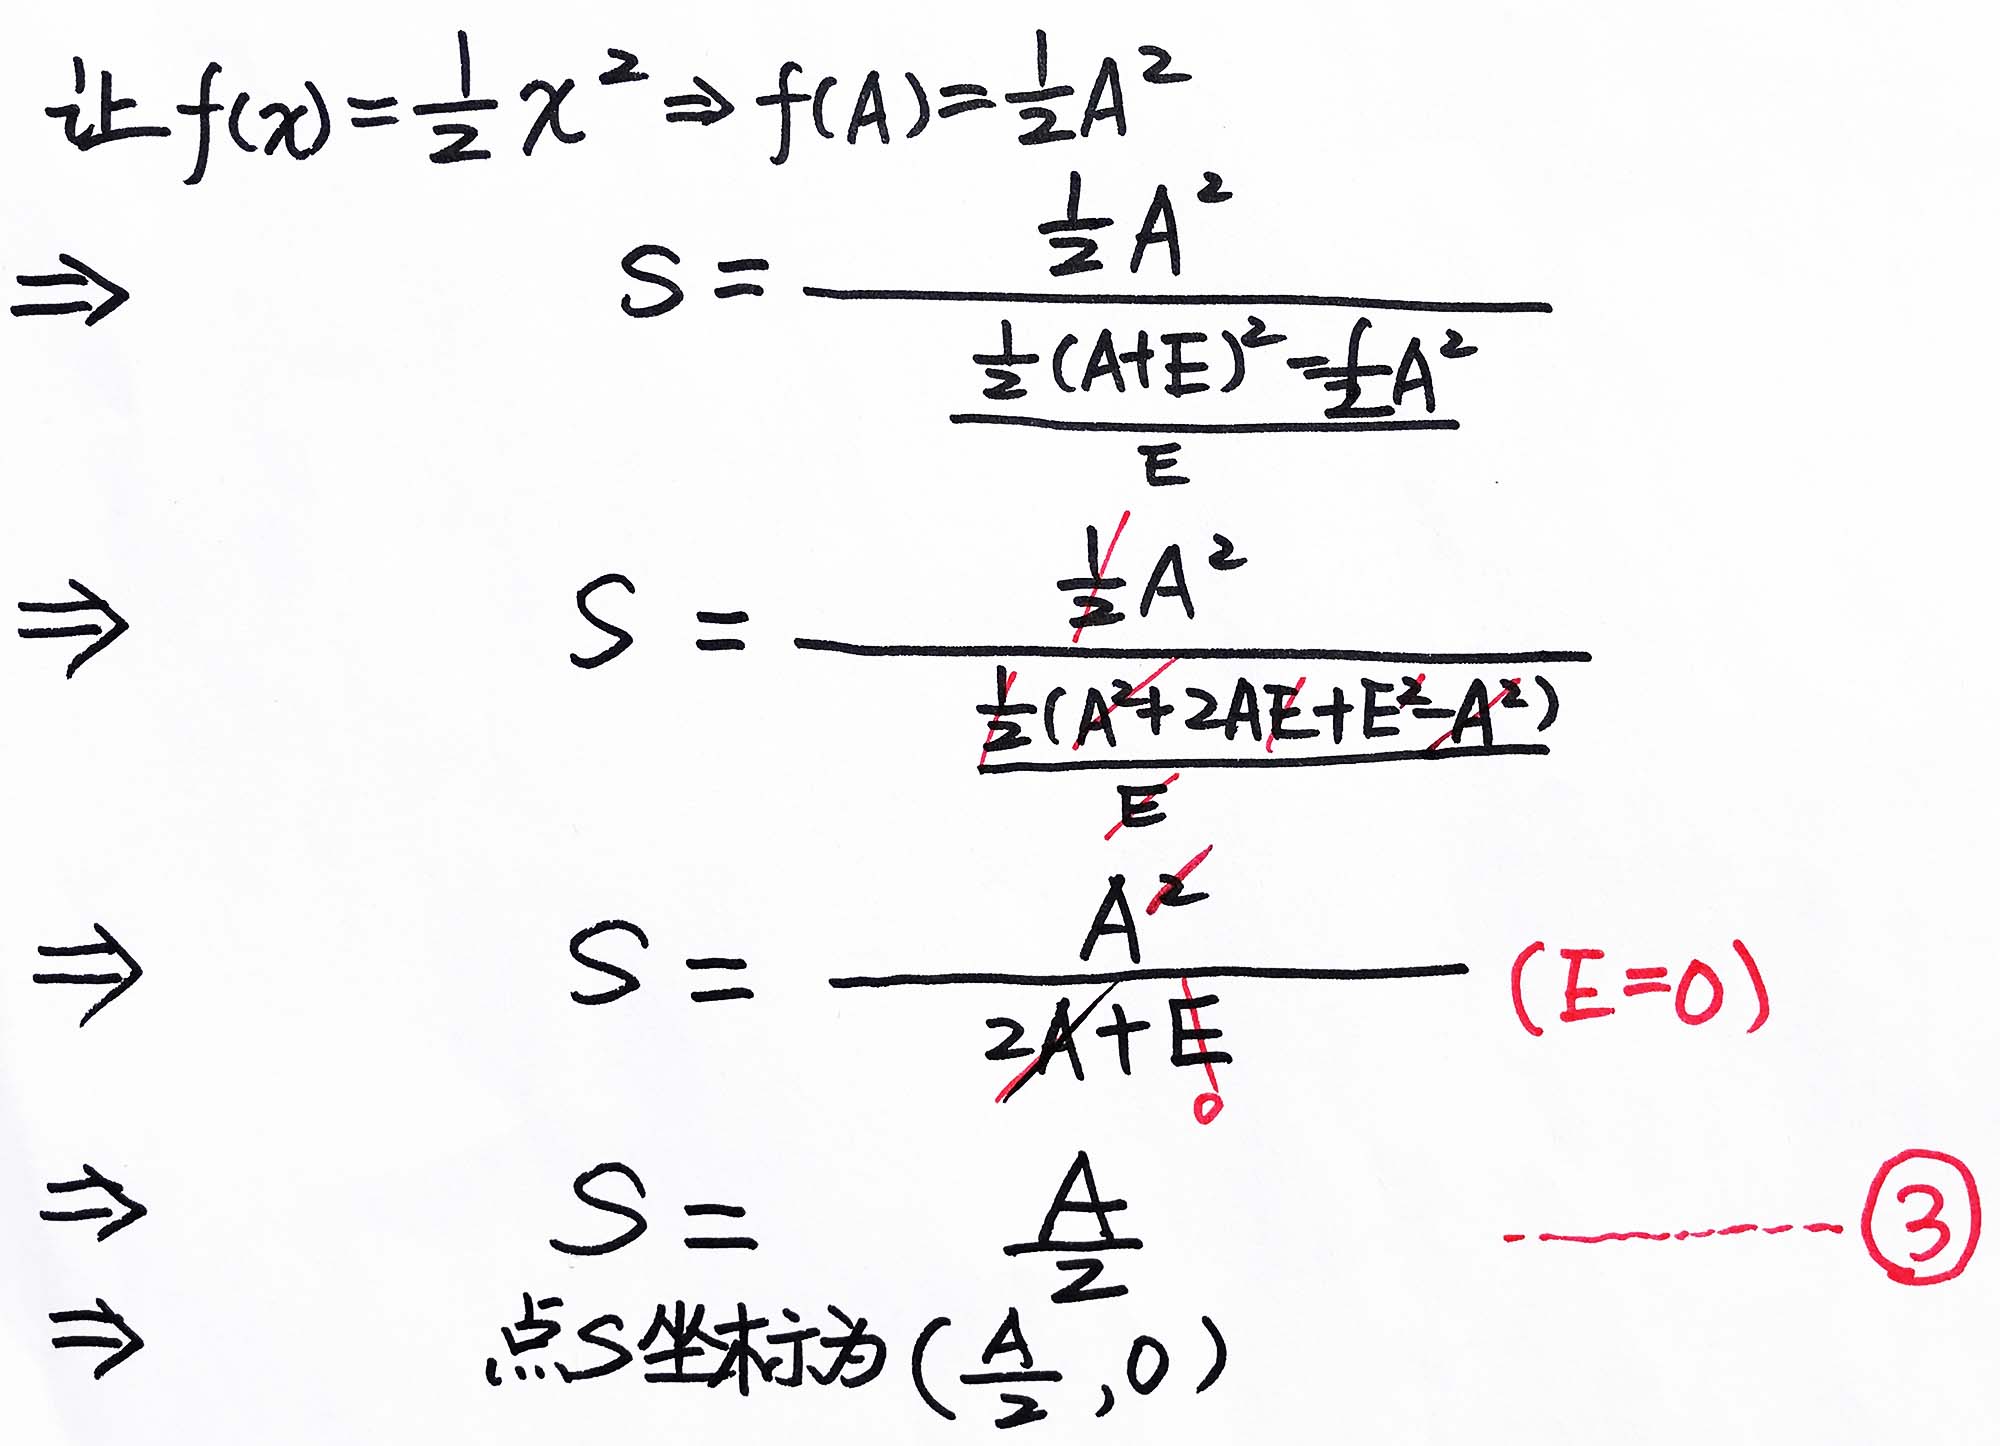 让 f(x)=1/2 x² ⇒ f(A)=1/2 A²
⇒ S = (1/2 A²) / ((1/2 (A+E)² - 1/2 A²) / E)
⇒ S = (1/2 A²) / ((1/2 (A²+2AE+E²-A²)) / E)
⇒ S = A² / (2A+E) (E=0)
0
⇒ S = A/2 ------- ③
⇒ 点S坐标为(A/2,0)